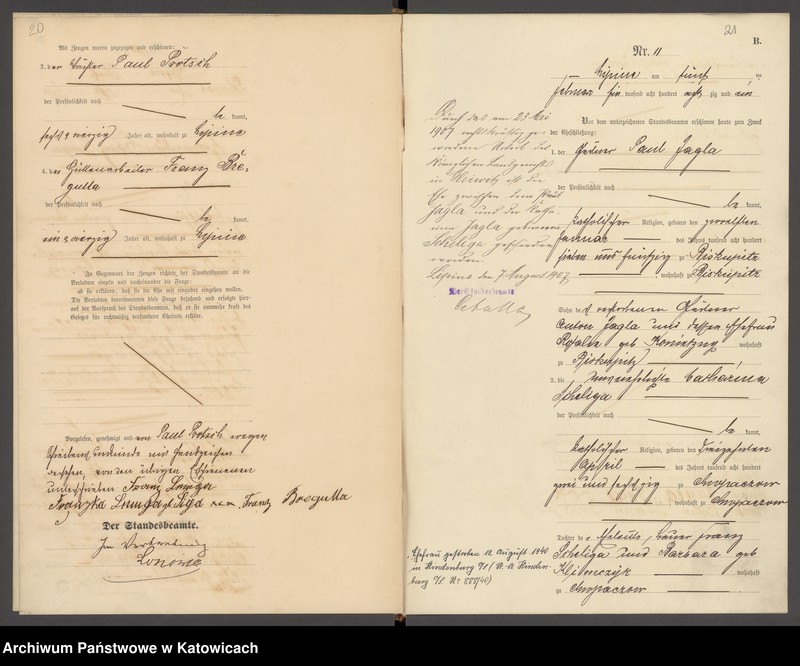 20
Als Zeugen waren zugezogen und erschienen:
3. der Häusler Paul Protsch
der Persönlichkeit nach
be kannt,
Jahre alt, wohnhaft zu Lipine
4. der Hüttenarbeiter Franz Bre-
gulla
der Persönlichkeit nach
be kannt,
Jahre alt, wohnhaft zu Lipine
In Gegenwart der Zeugen richtete der Standesbeamte an die
Verlobten einzeln und nacheinander die Frage:
ob sie erklären, daß sie die Ehe mit einander eingehen wollen.
Die Verlobten beantworteten diese Frage bejahend und erfolgte hier-
auf der Ausspruch des Standesbeamten, daß er sie nunmehr kraft des
Gesetzes für rechtmäßig verbundene Eheleute erkläre.
Vorgelesen, genehmigt und von Paul Protsch wegen
Schreibensunkunde mit Handzeichen
versehen, von den übrigen Erschienenen
unterschrieben Franz
Franz Bregulla
Der Standesbeamte.
In Vertretung
21
B.
Nr. 11
Lipine am fünf
Februar tausend acht hundert acht zig und ein
Vor dem unterzeichneten Standesbeamten erschienen heute zum Zweck
der Eheschließung:
1. der Paul Jagla
der Persönlichkeit nach
be kannt,
katholischer Religion, geboren den zwoelften
Januar des Jahres tausend acht hundert
sieben und fünfzig zu Biskupitz
, wohnhaft zu Biskupitz
Sohn des verstorbenen
Anton Jagla und dessen Ehefrau
Rosalie geb Konietzny wohnhaft
zu Biskupitz
2. die unverehelichte Catharina
Scheliga
der Persönlichkeit nach
be kannt,
katholischer Religion, geboren den dreizehnten
April des Jahres tausend acht hundert
zwei und sechzig zu Chropaczow
, wohnhaft zu Chropaczow
Tochter der Bauer Franz
Scheliga und Barbara geb
Klimczyk wohnhaft
zu Chropaczow
Durch das am 23 Mai
1907 rechtskräftig ge-
wordene Urteil des
Königlichen Landgerichts
in Gleiwitz ist die
Ehe zwischen dem Paul
Jagla und der Katha-
rina Jagla geborene
Scheliga geschieden
worden.
Lipine den 7 August 1907
Der Standesbeamte
Ehefrau gestorben 12. August 1940
in Hindenburg O/S (St.-A. Hinden-
burg O/S Nr 888/40)
Archiwum Państwowe w Katowicach